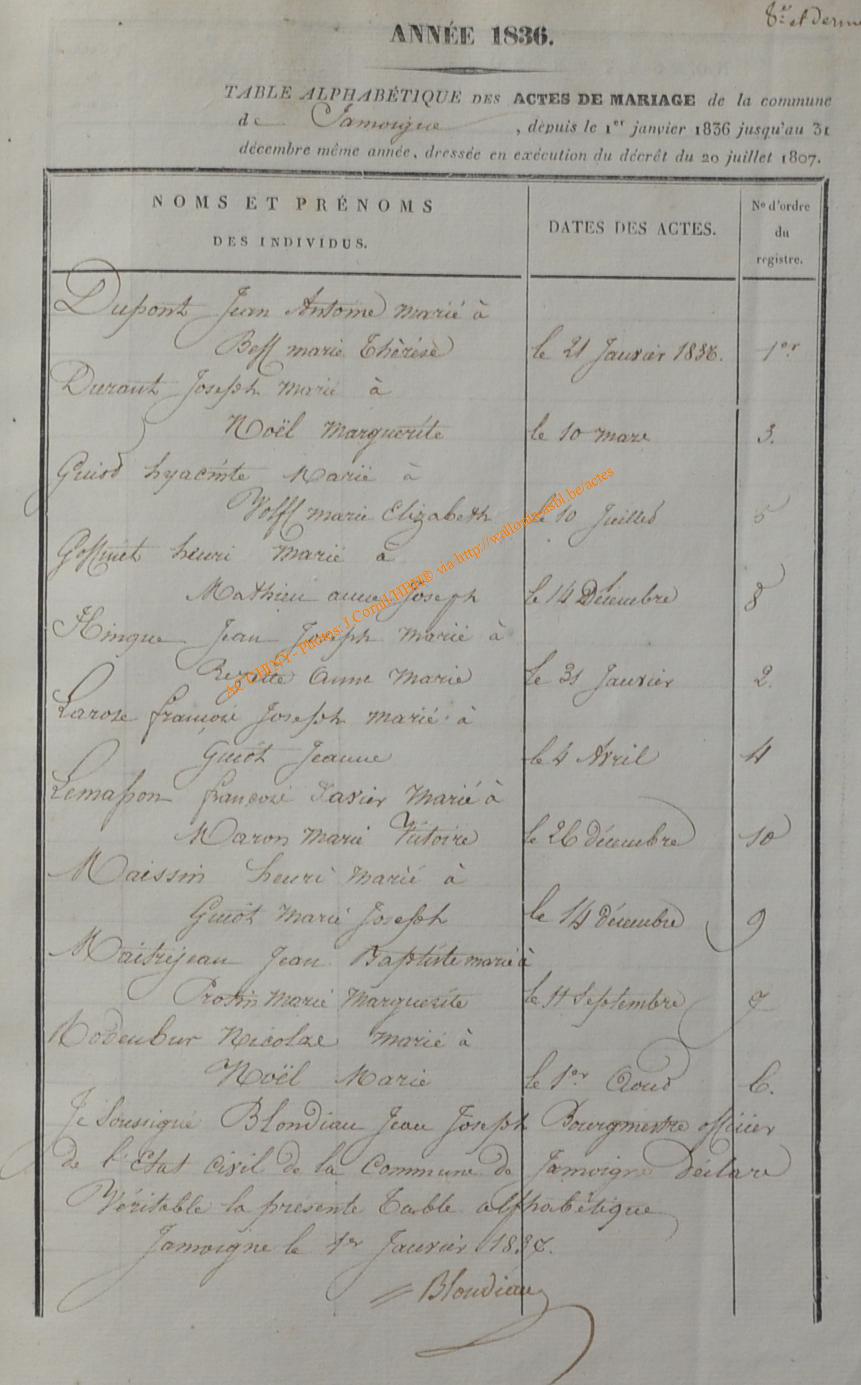 8e et dern
ANNÉE 1836.
TABLE ALPHABÉTIQUE DES ACTES DE MARIAGE de la commune
de Jamoigne, depuis le 1er janvier 1836 jusqu'au 31
décembre même année, dressée en exécution du décrêt du 20 juillet 1807.
NOMS ET PRÉNOMS
DES INDIVIDUS.
DATES DES ACTES.
No d'ordre
du
registre.
Dupont Jean Antoine marié à
Beff marie Thérèse le 21 Janvier 1836. 1er
Durant Joseph marié à
Noël Marguerite le 10 mars 3.
Guiot hyacinte Marié à
Wolff marie Elizabeth le 10 Juillet 5
Goffinet henri Marié à
Mathieu anne Joseph le 14 Décembre 8
Hinque Jean Joseph marié à
Rezette Anne Marie le 31 Janvier 2.
Larose françois Joseph marié à
Guiot Jeanne le 4 Avril 4
Lemasson françois Xavier Marié à
Maron Marie Victoire le 26 décembre 10
Maissin henri marié à
Guiot Marie Joseph le 14 décembre 9
Maitrejean Jean Baptiste marié à
Marie Marguerite le 11 Septembre 7
Rodenbur Nicolae marié à
Noël Marie le 1er Aout 6.
Je Soussigné Blondiau Jean Joseph Bourgmestre officier
de l'Etat civil de la Commune de Jamoigne Déclare
Véritable la présente Table alphabétique
Jamoigne le 1er Janvier 1837.
Blondiau
AC CHINY - Photos J.Cornil HBH® via http://wallonia-asbl.be/actes